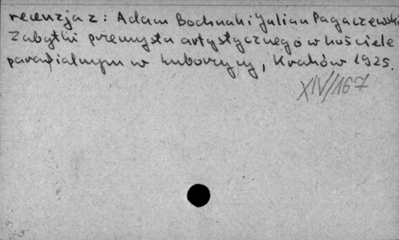 recenzja z: Adam Bochnak i Julian Pagaczewski
Zabytki przemysłu artystycznego w kościele
parafialnym w Luborzycy, Kraków 1925.
XIV/167